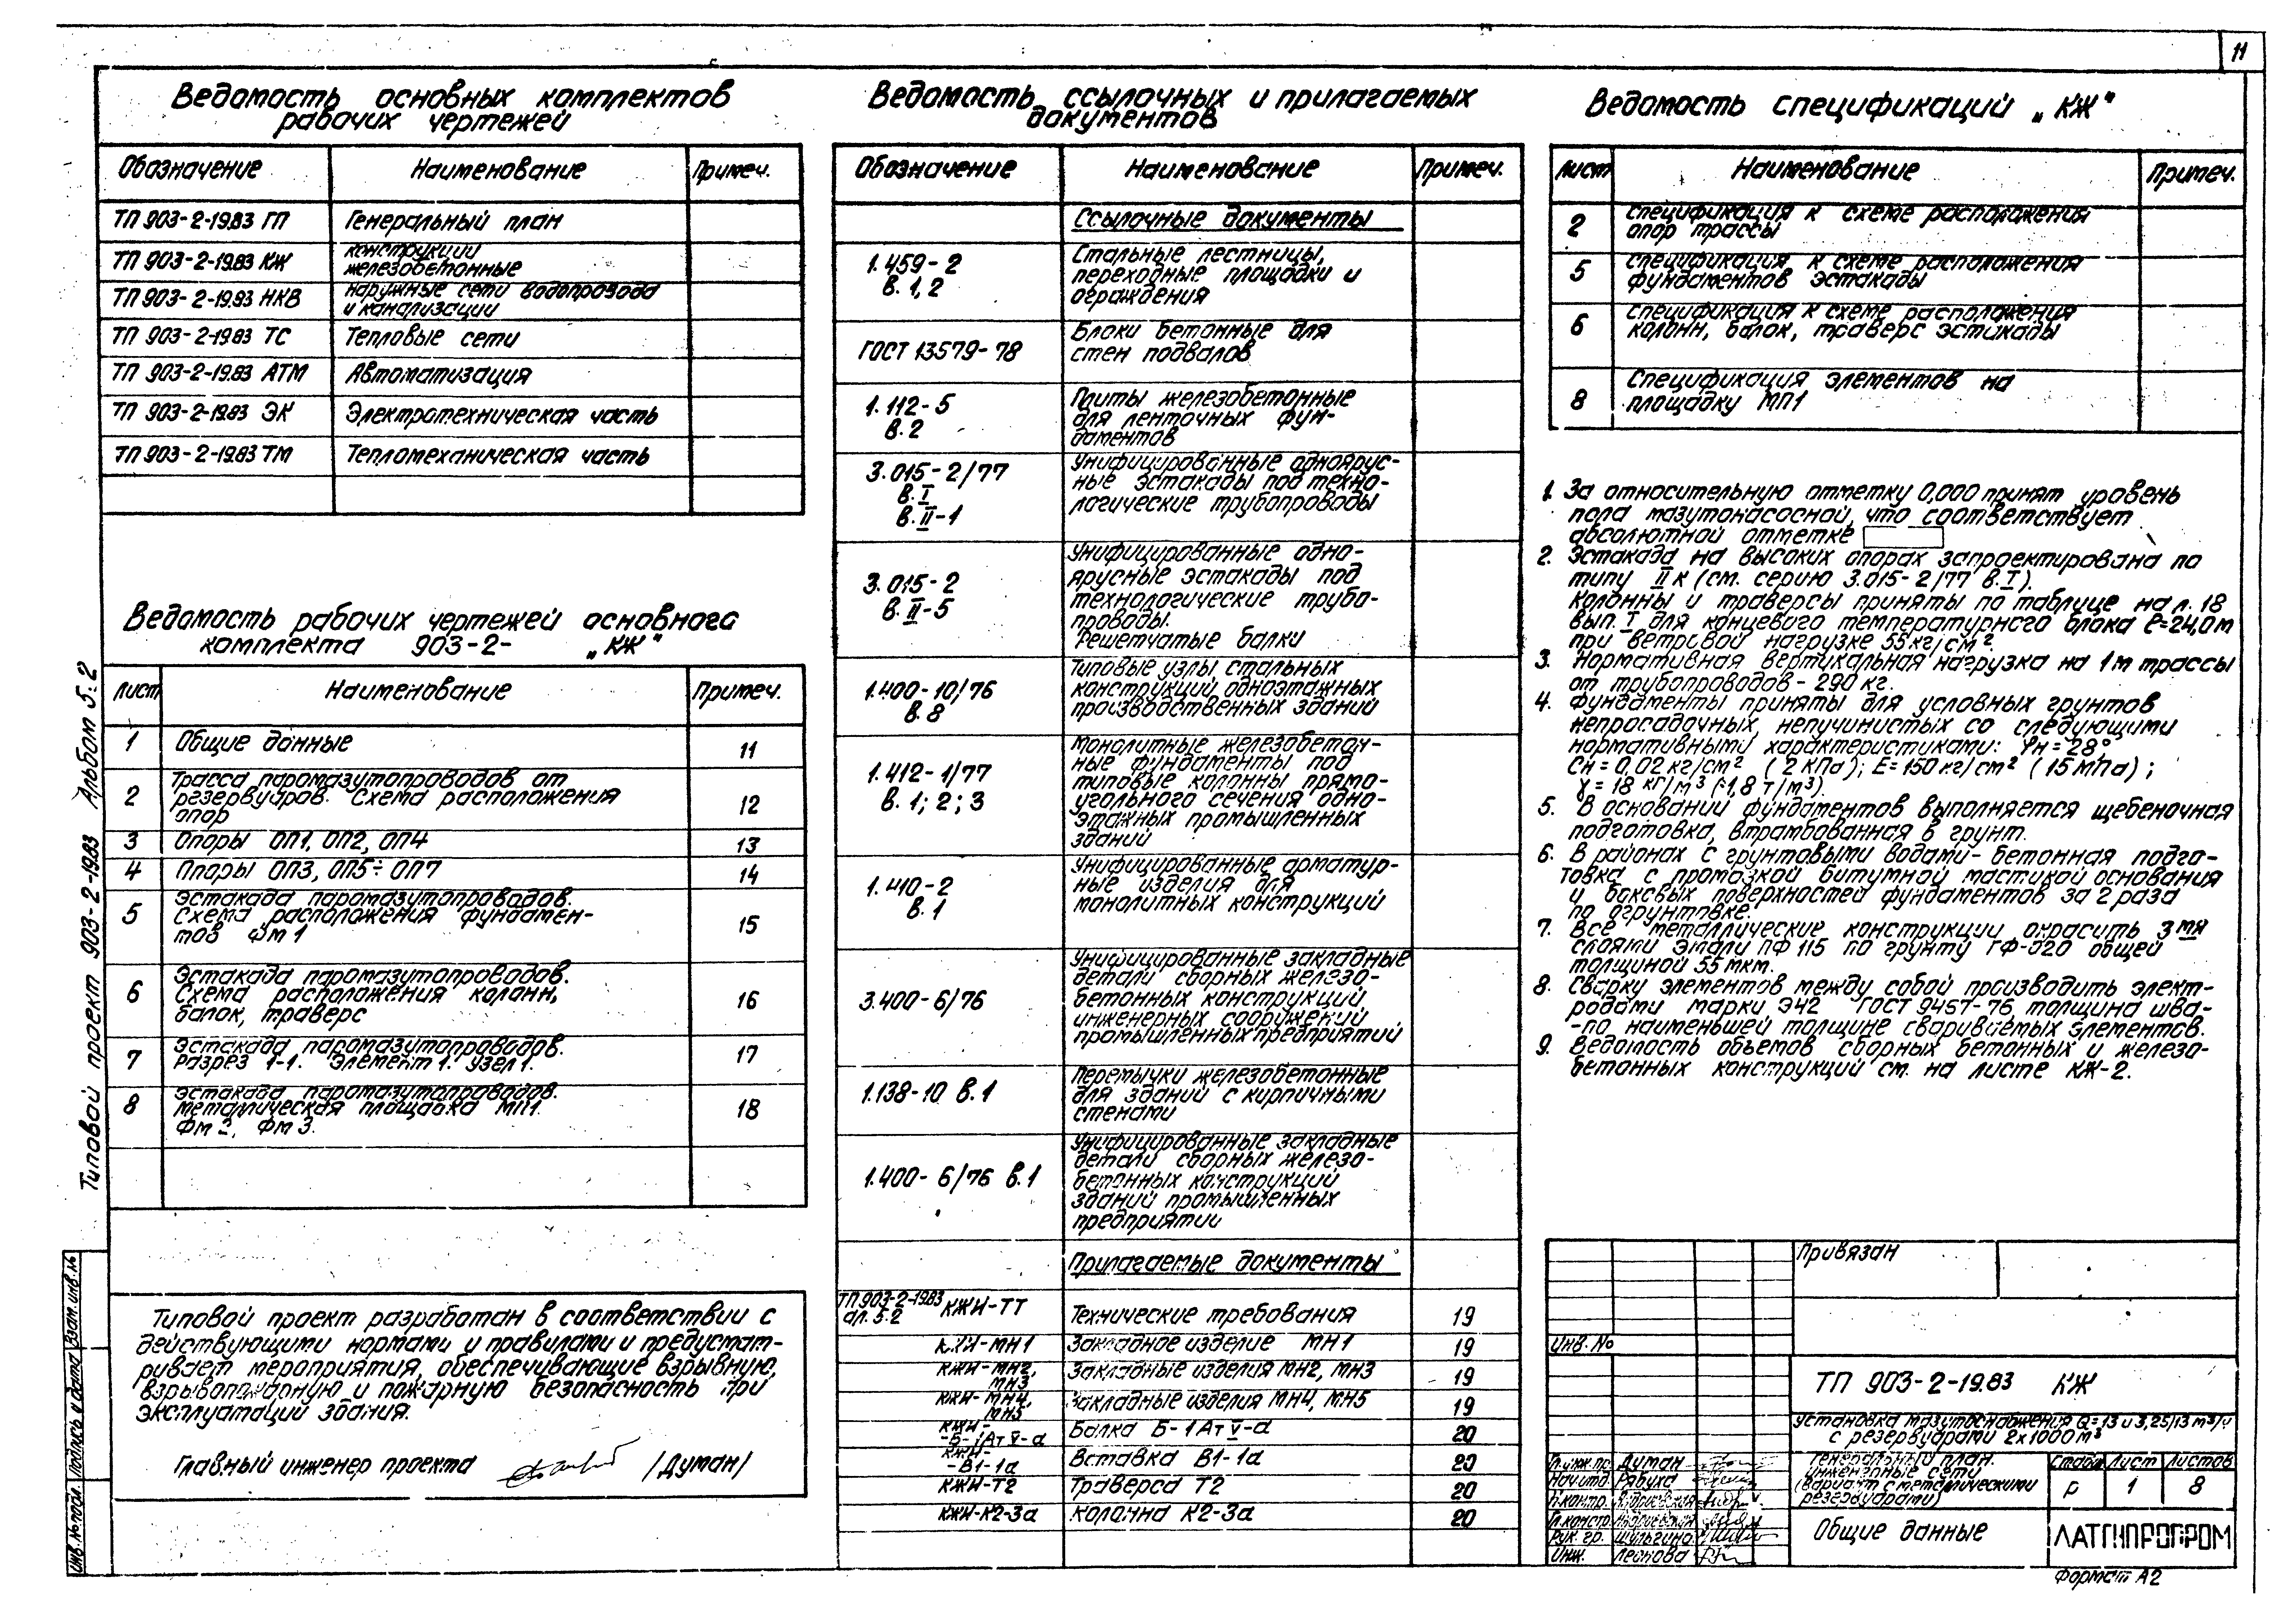 11
Ведомость основных комплектов
рабочих чертежей
Обозначение Наименование Примеч.
ТП 903-2-19.83 ГП Генеральный план
ТП 903-2-19.83 КЖ конструкции
железобетонные
ТП 903-2-19.83 НКВ наружные сети водопровода
и канализации
ТП 903-2-19.83 ТС Тепловые сети
ТП 903-2-19.83 АТМ Автоматизация
ТП 903-2-19.83 ЭК Электротехническая часть
ТП 903-2-19.83 ТМ Тепломеханическая часть
Ведомость рабочих чертежей основного
комплекта 903-2- „КЖ"
Лист Наименование Примеч.
1 Общие данные 11
2 Трасса паромазутопроводов от
резервуаров. Схема расположения
опор 12
3 Опоры ОП1, ОП2, ОП4 13
4 Опоры ОП3, ОП5÷ОП7 14
5 Эстакада паромазутопроводов.
Схема расположения фундамен-
тов Фм1 15
6 Эстакада паромазутопроводов.
Схема расположения колонн,
балок, траверс 16
7 Эстакада паромазутопроводов.
Разрез 1-1. Элемент 1. Узел 1. 17
8 Эстакада паромазутопроводов.
Металлическая площадка МП1.
Фм2, Фм3. 18
Типовой проект разработан в соответствии с
действующими нормами и правилами и предусмат-
ривает мероприятия, обеспечивающие взрывную,
взрывопожарную и пожарную безопасность при
эксплуатации здания.
Главный инженер проекта /Думан/
Ведомость ссылочных и прилагаемых
документов
Обозначение Наименование Примеч.
Ссылочные документы
1.459-2
в. 1,2
Стальные лестницы,
переходные площадки и
ограждения
ГОСТ 13579-78
Блоки бетонные для
стен подвалов
1.112-5
в.2
Плиты железобетонные
для ленточных фун-
даментов
3.015-2/77
в. I
в. II-1
Унифицированные одноярус-
ные эстакады под техно-
логические трубопроводы
3.015-2
в. II-5
Унифицированные одно-
ярусные эстакады под
технологические трубо-
проводы.
Решетчатые балки
1.400-10/76
в. 8
Типовые узлы стальных
конструкций одноэтажных
производственных зданий
1.412-1/77
в. 1; 2; 3
Монолитные железобетон-
ные фундаменты под
типовые колонны прямо-
угольного сечения одно-
этажных промышленных
зданий
1.410-2
в. 1
Унифицированные арматур-
ные изделия для
монолитных конструкций
3.400-6/76
Унифицированные закладные
детали сборных железо-
бетонных конструкций
инженерных сооружений
промышленных предприятий
1.138-10 в.1
Перемычки железобетонные
для зданий с кирпичными
стенами
1.400-6/76 в.1
Унифицированные закладные
детали сборных железо-
бетонных конструкций
зданий промышленных
предприятии
Прилагаемые документы
ТП 903-2-19.83
ал. 5.2 КЖИ-ТТ Технические требования 19
КЖИ-МН1 Закладное изделие МН1 19
КЖИ-МН2,
МН3 Закладные изделия МН2, МН3 19
КЖИ-МН4,
МН5 Закладные изделия МН4, МН5 19
КЖИ-
-Б-1Ат V-а Балка Б-1Ат V-а 20
КЖИ-
-В1-1а Вставка В1-1а 20
КЖИ-Т2 Траверса Т2 20
КЖИ-К2-3а колонна К2-3а 20
Ведомость спецификаций „КЖ"
Лист Наименование Примеч.
2 Спецификация к схеме расположения
опор трассы
5 спецификация к схеме расположения
фундаментов эстакады
6 спецификация к схеме расположения
колонн, балок, траверс эстакады
8 Спецификация элементов на
площадку МП1
1. За относительную отметку 0,000 принят уровень
пола мазутонасосной, что соответствует
абсолютной отметке
2. Эстакада на высоких опорах запроектирована по
типу IIк (см. серию 3.015-2/77 в. I).
Колонны и траверсы приняты по таблице на л. 18
вып. I для концевого температурного блока ℓ=24,0м
при ветровой нагрузке 55 кг/см².
3. Нормативная вертикальная нагрузка на 1м трассы
от трубопроводов - 290 кг.
4. Фундаменты приняты для условных грунтов
непросадочных, непучинистых со следующими
нормативными характеристиками: φн=28°,
Сн=0,02 кг/см² (2 КПа); Е=150кг/см² (15МПа);
γ=18 кг/м³ (1,8 т/м³).
5. В основании фундаментов выполняется щебеночная
подготовка, втрамбованная в грунт.
6. В районах с грунтовыми водами - бетонная подго-
товка с промазкой битумной мастикой основания
и боковых поверхностей фундаментов за 2 раза
по огрунтовке.
7. Все металлические конструкции окрасить 3мя
слоями эмали ПФ 115 по грунту ГФ-020 общей
толщиной 55 мкм.
8. Сварку элементов между собой производить элект-
родами марки Э42 ГОСТ 9467-76, толщина шва-
-по наименьшей толщине свариваемых элементов.
9. Ведомость объемов сборных бетонных и железо-
бетонных конструкций см. на листе КЖ-2.
Привязан
Инв. №
ТП 903-2-19.83 КЖ
Установка мазутоснабжения Q=13 и 3,25/13 м³/ч
с резервуарами 2х1000м³
Гл.инж.пр. Думан
Нач.отд. Рябуха
Н.контр.
Гл.констр.
Рук. гр. Шульгина
Инж. Леснова
Генеральный план.
инженерные сети
(вариант с металлическими
резервуарами)
Стадия Лист Листов
Р 1 8
Общие данные
ЛАТГИПРОПРОМ
Формат А2
Типовой проект 903-2-19.83 Альбом 5.2
Инв.№ подл. Подпись и дата Взам. инв.№